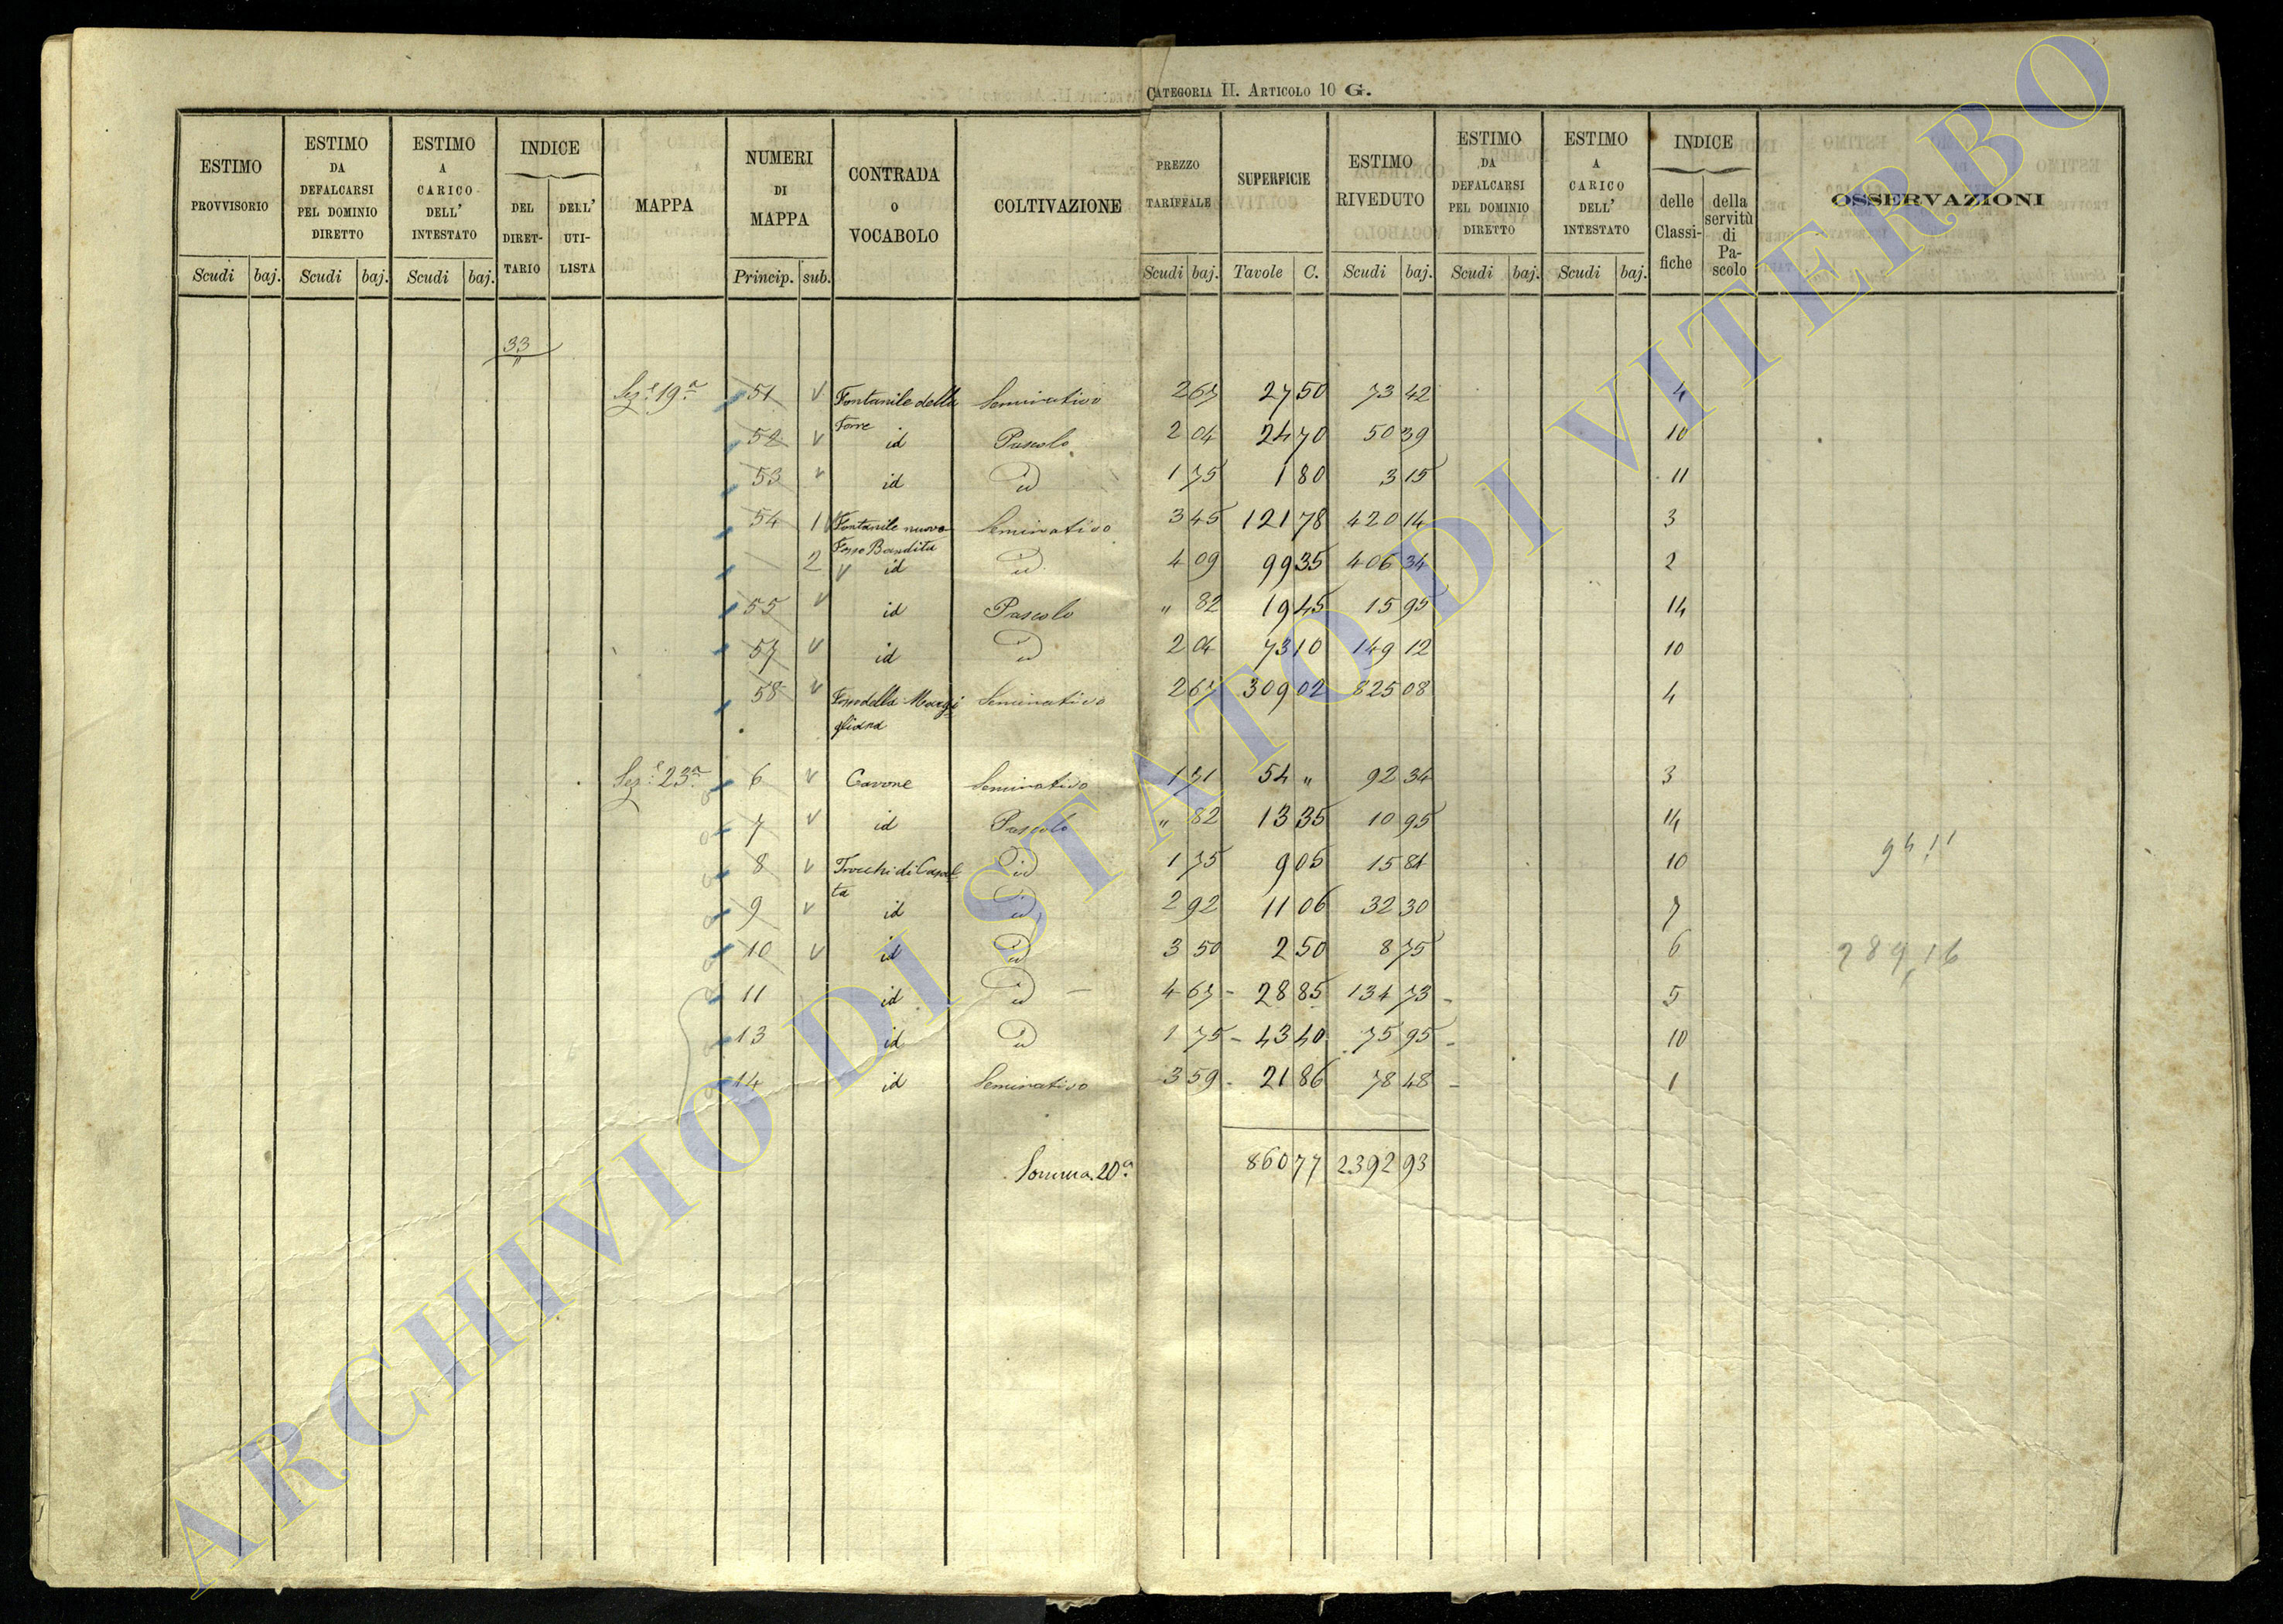 CATEGORIA II. ARTICOLO 10 G.
ESTIMO PROVVISORIO Scudi baj.
ESTIMO DA DEFALCARSI PEL DOMINIO DIRETTO Scudi baj.
ESTIMO A CARICO DELL' INTESTATO Scudi baj.
INDICE DEL DIRET-TARIO DELL' UTI-LISTA
MAPPA
NUMERI DI MAPPA Princip. sub.
CONTRADA O VOCABOLO
COLTIVAZIONE
PREZZO TARIFFALE Scudi baj.
SUPERFICIE Tavole C.
ESTIMO RIVEDUTO Scudi baj.
ESTIMO DA DEFALCARSI PEL DOMINIO DIRETTO Scudi baj.
ESTIMO A CARICO DELL' INTESTATO Scudi baj.
INDICE delle Classi-fiche della servitù di Pa-scolo
OSSERVAZIONI
33
"
Sez.e 19a 51 Fontanile della Torre Seminativo 2 67 27 50 73 42 4
52 id Pascolo 2 04 24 70 50 39 10
53 id id 1 75 1 80 3 15 11
54 1 Fontanile nuovo Seminativo 3 45 121 78 420 14 3
Fosso Bandita
2 id id 4 09 99 35 406 34 2
55 id Pascolo " 82 19 45 15 95 14
57 id id 2 04 73 10 149 12 10
58 Fosso della Margi Seminativo 2 67 309 02 825 08 4
gliana
Sez.e 23a 6 Cavone Seminativo 1 71 54 " 92 34 3
7 id Pascolo " 82 13 35 10 95 14
8 id 1 75 9 05 15 84 10
9 id id 2 92 11 06 32 30 7
10 id id 3 50 2 50 8 75 6
11 id id 4 67 28 85 134 73 5
13 id id 1 75 43 40 75 95 10
14 id Seminativo 3 59 21 86 78 48 1
289,16
Somma 20a 860 77 2392 93
ARCHIVIO DI STATO DI VITERBO